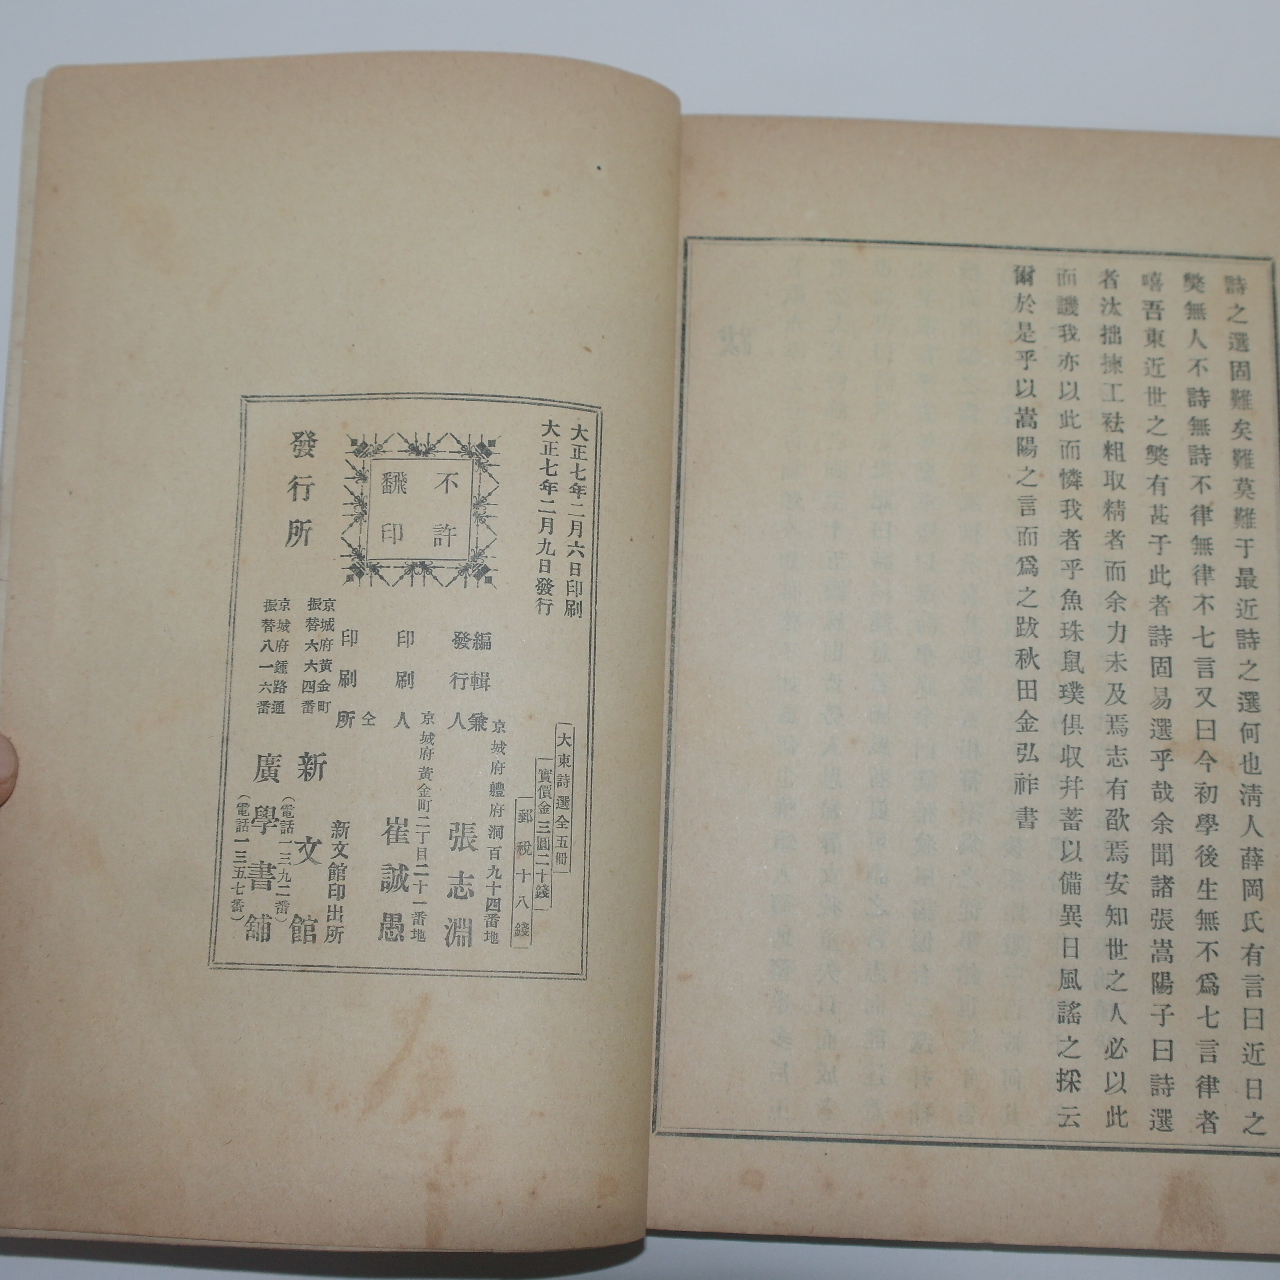 詩之選固難矣難莫難于最近詩之選何也淸人薛岡氏有言曰近日之
獘無人不詩無詩不律無律不七言又曰今初學後生無不爲七言律者
嘻吾東近世之獘有甚于此者詩固易選乎哉余聞諸張嵩陽子曰詩選
者汰拙揀工祛粗取精者而余力未及焉志有欿焉安知世之人必以此
而譏我亦以此而憐我者乎魚珠鼠璞俱収幷蓄以備異日風謠之採云
爾於是乎以嵩陽之言而爲之跋秋田金弘祚書
大正七年二月六日印刷
大正七年二月九日發行
大東詩選全五冊
實價金三圓二十錢
郵稅十八錢
不許
飜印
京城府體府洞百九十四番地
編輯兼
發行人
張志淵
京城府黃金町二丁目二十一番地
印刷人
崔誠愚
仝
印刷所
新文館印出所
發行所
京城府黃金町
振替六六四番
新文館
(電話一三九二番)
京城府鍾路通
振替八一六番
廣學書舖
(電話一三五七番)